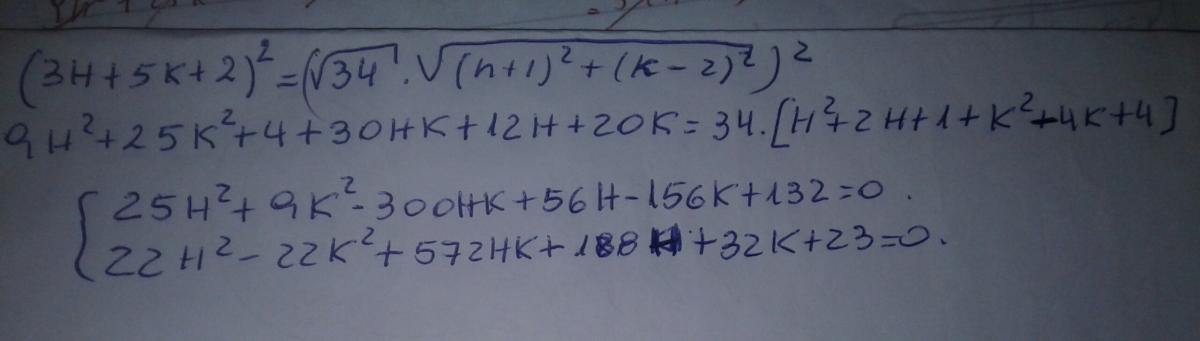 (3H+5K+2)² = (√34 . √(h+1)² + (K-2)²)²
9H²+25K²+4+30HK+12H+20K = 34.[H²+2H+1+K²-4K+4]
{ 25H²+9K²-300HK+56H-156K+132=0.
22H²-22K²+572HK+188H+32K+23=0.